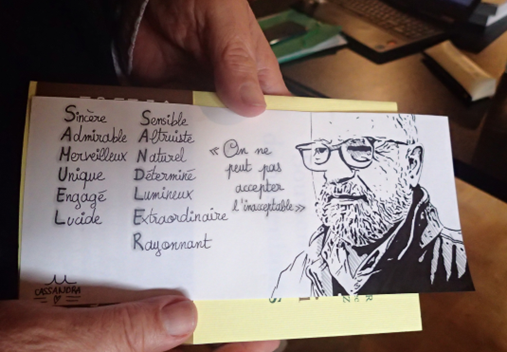 Sincère
Admirable
Merveilleux
Unique
Engagé
Lucide
Sensible
Altruiste
Naturel
Déterminé
Lumineux
Extraordinaire
Rayonnant
« On ne
peut pas
accepter
l'inacceptable »
CASSANDRA